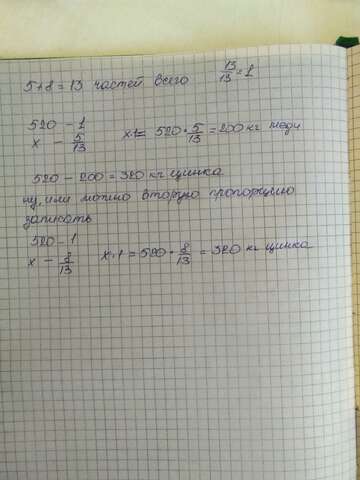 5+8=13 частей всего 13/13=1
520 – 1
x – 5/13 x·1= 520 · 5/13 = 200 кг меди
520 – 200 = 320 кг цинка
ну, или можно вторую пропорцию
записать
520 – 1
x – 8/13 x·1 = 520 · 8/13 = 320 кг цинка